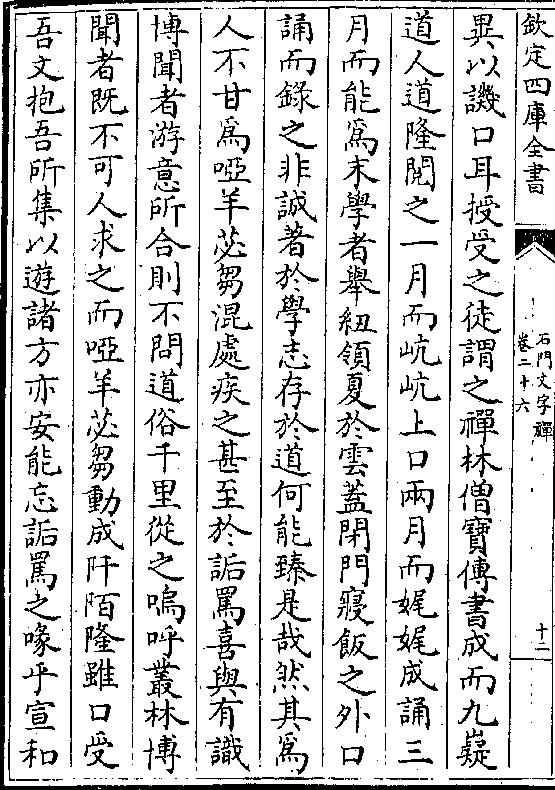 欽定四庫全書
石門文字禪
卷二十六
十二
異以譏口耳授受之徒謂之禪林僧寶傳書成而九嶷
道人道隆閱之一月而岏岏上口兩月而娓娓成誦三
月而能為末學者舉紐領夏於雲蓋閉門寢飯之外口
誦而錄之非誠著於學志存於道何能臻是哉然其為
人不甘為啞羊苾芻混處疾之甚至於詬罵喜與有識
博聞者游意所合則不問道俗千里從之嗚呼叢林博
聞者既不可人求之而啞羊苾芻動成阡陌隆雖口受
吾文抱吾所集以遊諸方亦安能忘詬罵之喙乎宣和